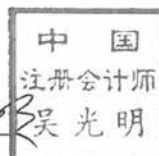 中国
注册会计师
吴光明